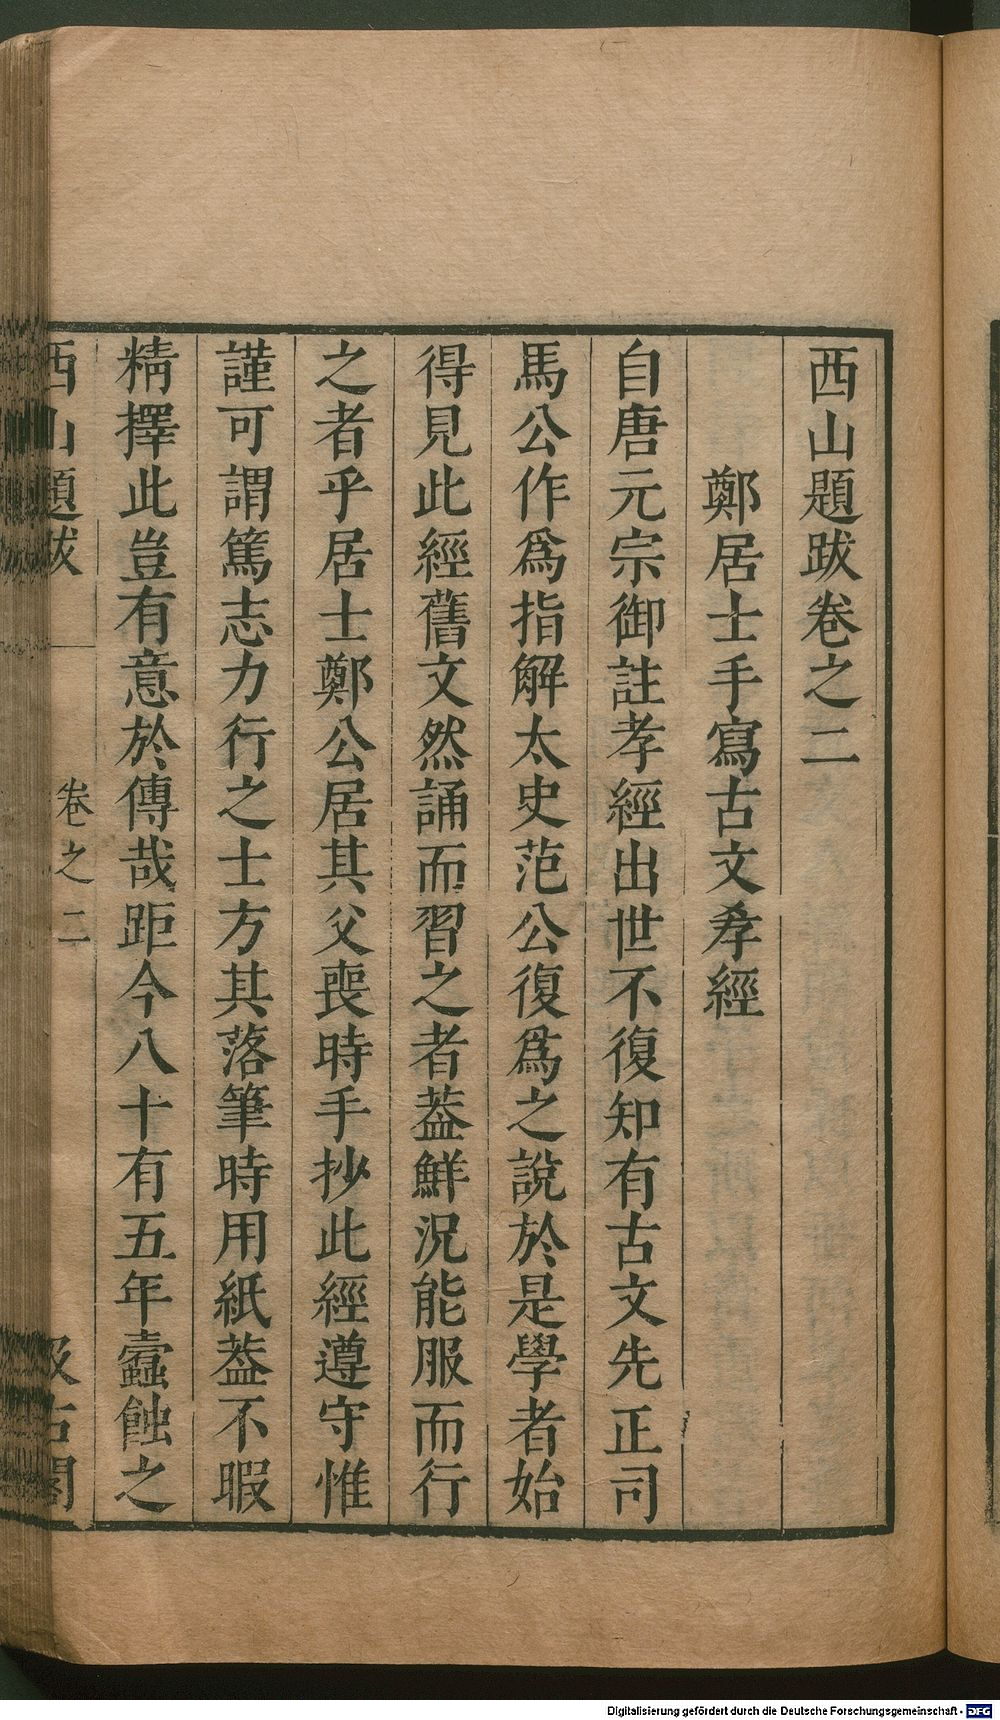 西山題跋卷之二
鄭居士手寫古文孝經
自唐元宗御註孝經出世不復知有古文先正司
馬公作爲指解太史范公復爲之說於是學者始
得見此經舊文然誦而習之者葢鮮況能服而行
之者乎居士鄭公居其父喪時手抄此經遵守惟
謹可謂篤志力行之士方其落筆時用紙葢不暇
精擇此豈有意於傳哉距今八十有五年蠹蝕之
西山題跋
卷之二
汲古閣
Digitalisierung gefördert durch die Deutsche Forschungsgemeinschaft - DFG